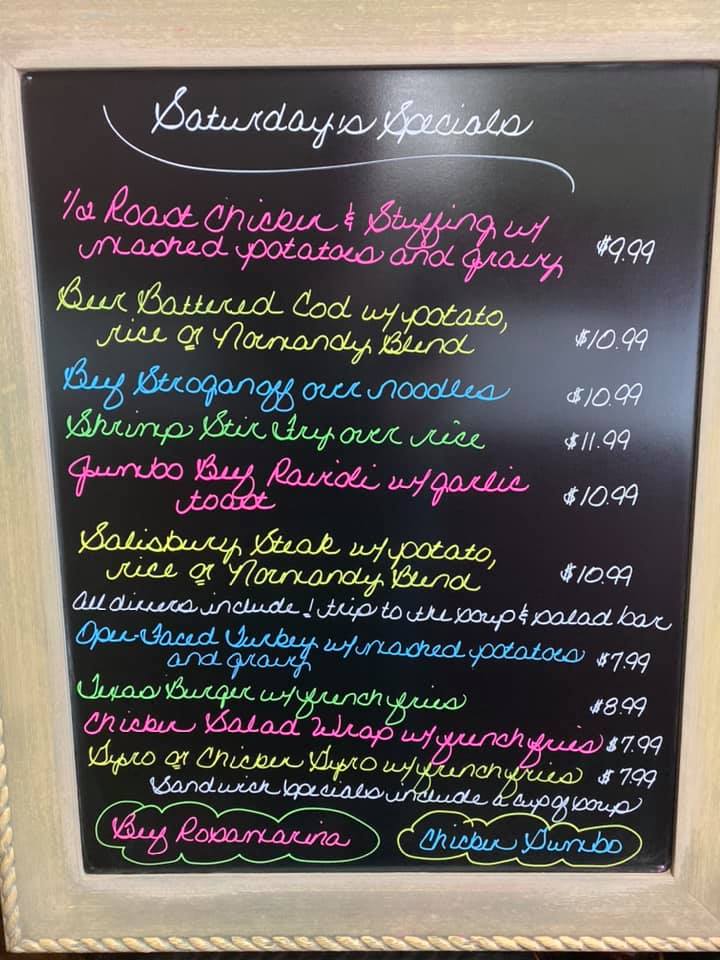 Saturday's Specials
1/2 Roast Chicken & Stuffing w/
mashed potatoes and gravy $9.99
Beer Battered Cod w/ potato,
rice or Normandy Blend $10.99
Beef Stroganoff over noodles $10.99
Shrimp Stir Fry over rice $11.99
Jumbo Beef Ravioli w/ garlic
toast $10.99
Salisbury Steak w/ potato,
rice or Normandy Blend $10.99
All dinners include 1 trip to the soup & salad bar
Open-Faced Turkey w/ mashed potatoes
and gravy $7.99
Texas Burger w/ french fries $8.99
Chicken Salad Wrap w/ french fries $7.99
Gyro or Chicken Gyro w/ french fries $7.99
Sandwich specials include a cup of soup
Beef Rosamarina Chicken Gumbo